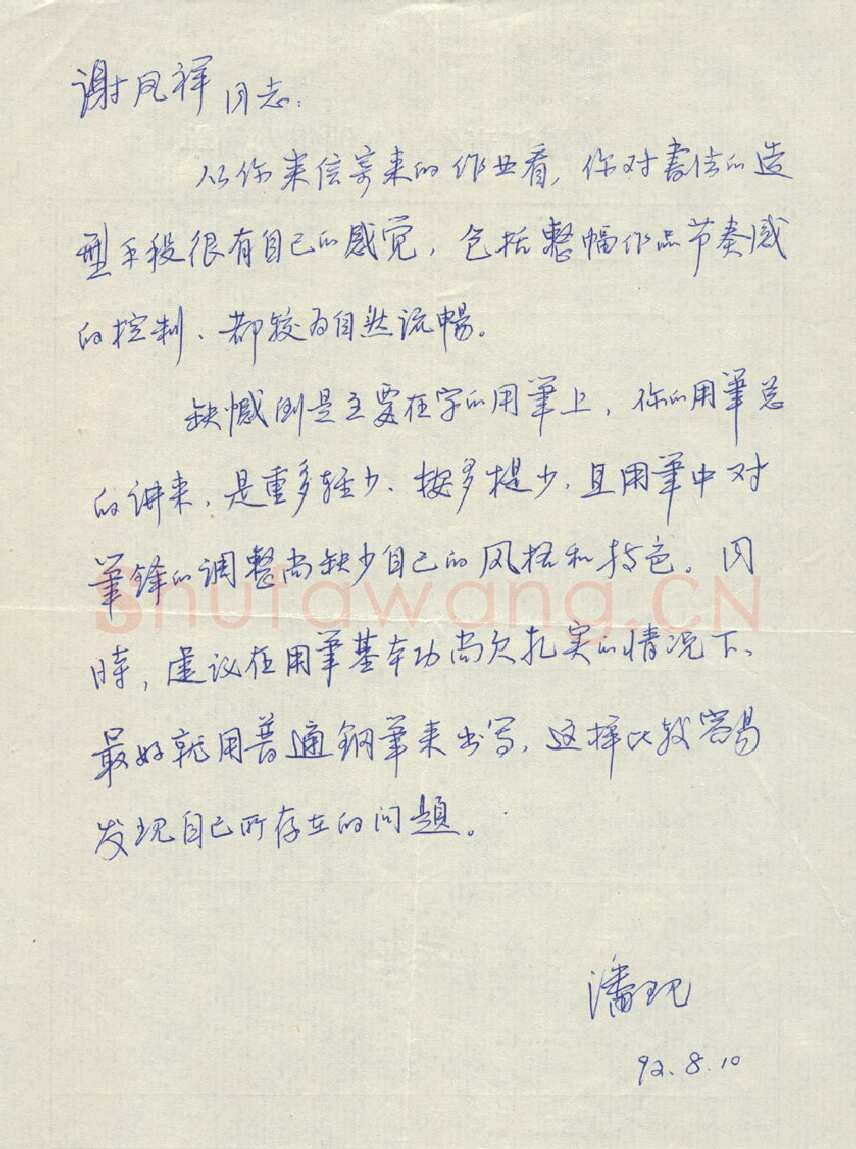 谢凤祥同志：
从你来信寄来的作业看，你对書法的造
型手段很有自己的感觉，包括整幅作品节奏感
的控制、都较为自然流暢。
缺憾倒是主要在字的用筆上，你的用筆总
的讲来，是重多轻少、按多提少，且用筆中对
筆锋的调整尚缺少自己的风格和特色。同
Shufawang.CN
时，建议在用筆基本功尚欠扎实的情况下、
最好就用普通钢筆来书写，这样比较容易
发现自己所存在的问題。
潘
92.8.10